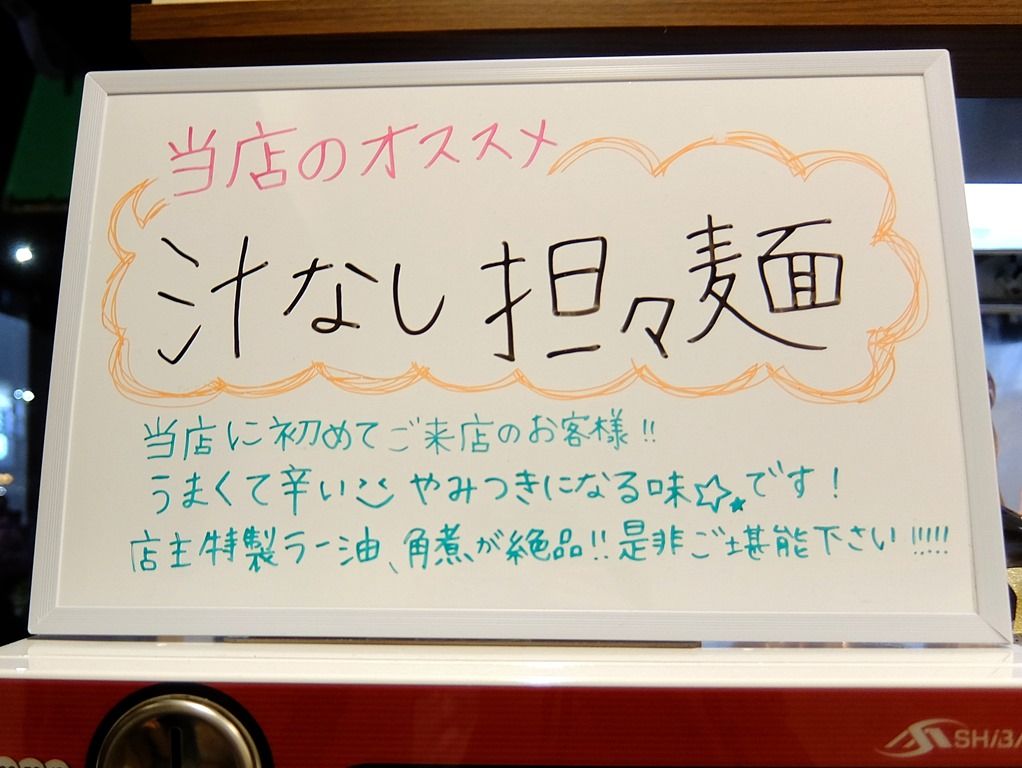 当店のオススメ
汁なし担々麺
当店に初めてご来店のお客様!!
うまくて辛い やみつきになる味☆★です!
店主特製ラー油、角煮が絶品!!是非ご堪能下さい!!!!!